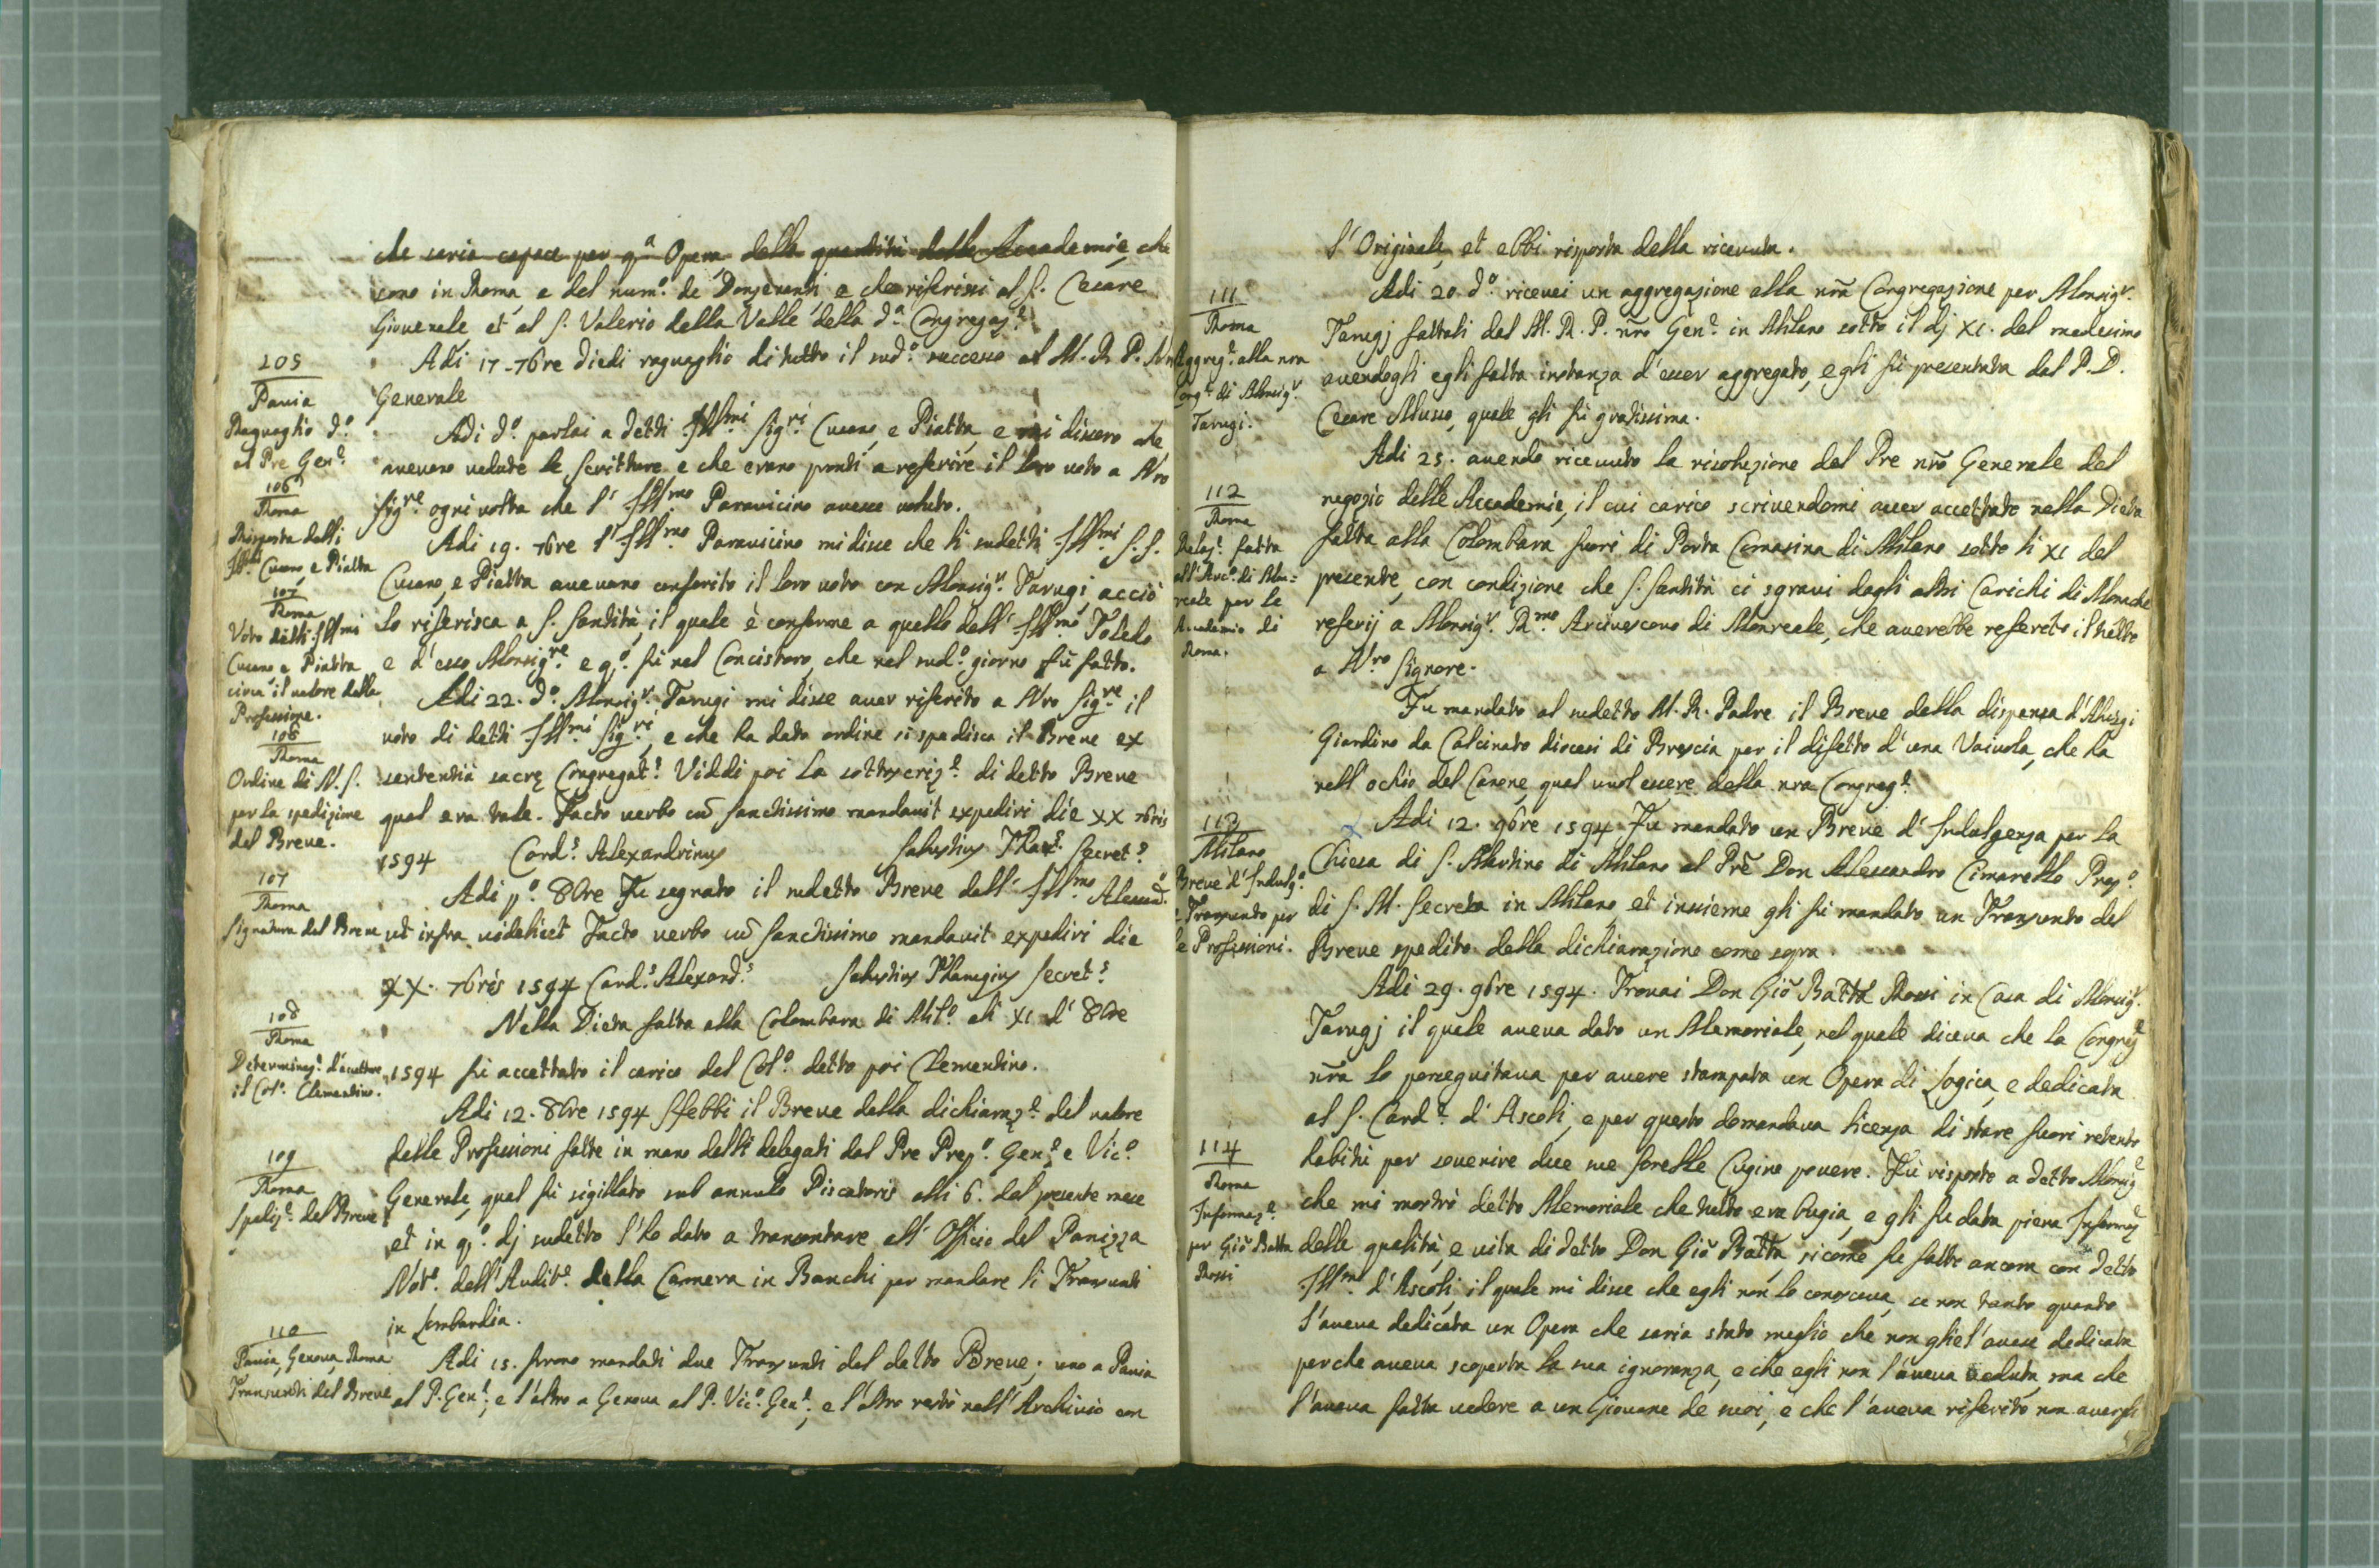 che saria capace per q.a Opera, della quantità delle Accademie, che
sono in Roma, e del num.o de Donzenanti, e che riferissi al S. Cesare
Giovenale et al S. Valerio della Valle della d.a Congregaz.e
105
Pavia
Raguaglio d.o
al Pre Gen.e
Adi 17 7bre diedi raguaglio di tutto il sud.o successo al M. R. P. Nro
Generale
106
Roma
Risposta delli
Ill.mi Cusano, e Piatta
Adi d.o parlai a detti Ill.mi Sig.ri Cusano, e Piatta, e mi dissero che
avevano vedute le scritture e che erano pronti a referire il loro voto a Nro
Sig.re ogni volta che l'Ill.mo Paravicino avesse voluto.
107
Roma
Voto delli Ill.mi
Cusano e Piatta
circa il valore della
Professione.
Adi 19. 7bre l'Ill.mo Paravicino mi disse che li sudetti Ill.mi S.S.
Cusano, e Piatta avevano conferito il loro voto con Monsig.r Tarugi acciò
lo riferisca a S. Santità, il quale è conforme a quello dell'Ill.mo Toledo
e d'esso Monsig.re e q.o fù nel Concistoro, che nel sud.o giorno fù fatto.
106
Roma
Ordine di N.S.
per la spedizione
del Breve.
Adi 22. d.o Monsig.r Tarugi mi disse aver riferito a Nro Sig.re il
voto di detti Ill.mi Sig.ri, e che ha dato ordine si spedisca il Breve ex
sententia sacrę Congregat.s Viddi poi la sottoscriz.e di detto Breve
qual era tale. Facto verbo cũ Sanctissimo mandavit expediri die XX 7bris
1594 Card.s Alexandrinus Salustius Secret.s
107
Roma
Signatura del Breve
Adi p.o 8bre Fu segnato il sudetto Breve dall'Ill.mo Alessand.o
ut infra videlicet Facto verbo cũ Sanctissimo mandavit expediri die
XX. 7bris 1594 Card.s Alexand.s Salustius Secret.s
108
Roma
Determinaz.e d'accettare
il Col.o Clementino.
Nella Dieta fatta alla Colombara di Mil.o alli XI d'8bre
1594 fù accettato il carico del Col.o detto poi Clementino.
109
Roma
Spediz.e del Breve
Adi 12. 8bre 1594 s'hebbi il Breve della dichiaraz.e del valore
delle Professioni fatte in mano delli delegati dal Pre Prep.o Gen.e e Vic.o
Generale, qual fù sigillato sub annulo Piscatoris alli 6. del presente mese
et in q.o dj sudetto l'ho dato a transontare all'Officio del Panizza
Not.o dell'Audit.e della Camera in Banchi per mandare li Transunti
in Lombardia.
110
Pavia, Genova, Roma
Transunti del Breve
Adi 15. furono mandati due Transunti del detto Breve, uno a Pavia
al P. Gen.e; e l'altro a Genova al P. Vic.o Gen.e, e l'altro restò nell'Archivio con
l'Originale, et ebbi risposta della ricevuta.
111
Roma
Aggreg.e alla nra
Cong.e di Monsig.r
Tarugi.
Adi 20. d.o ricevei un aggregazione alla nrã Congregazione per Monsig.r
Tarugj fattali dal M. R. P. nrõ Gen.e in Milano sotto il dj XI. del medesimo
avendogli egli fatta instanza d'esser aggregato, e gli fù presentata dal P. D.
Cesare Musso, quale gli fù gratissima.
112
Roma
Relaz.e fatta
all'Arc.o di Mon=
reale per le
Academie di
Roma.
Adi 25. avendo ricevuto la risoluzione del Pre nrõ Generale del
negozio delle Accademie, il cui carico scrivendomi aver accettato nella Dieta
fatta alla Colombara fuori di Porta Comasina di Milano sotto li XI del
presente, con condizione che S. Santità ci sgravi dagli altri Carichi di Monache
referij a Monsig.r R.mo Arcivescovo di Monreale, che averebbe referito il tutto
a N.ro Signore.
Fu mandato al sudetto M. R. Padre il Breve della dispensa d'Aluigi
Giardino da Calcinato diocesi di Brescia per il difetto d'una Vaivola, che ha
nell'ochio del Canone, qual vuol essere della nra Congreg.e
113
Milano
Breve d'Indulg.o
e Transunto per
le Professioni.
x Adi 12. 9bre 1594 Fu mandato un Breve d'Indulgenza per la
Chiesa di S. Martino di Milano al Prẽ Don Alessandro Cimarello Prep.o
di S. M. Secreta in Milano, et insieme gli fù mandato un Transunto del
Breve spedito della dichiarazione come sopra.
114
Roma
Informaz.e
per Giõ Batta
Rossi
Adi 29. 9bre 1594. Trovai Don Giõ Battã Rossi in Casa di Monsig.r
Tarugj il quale aveva dato un Memoriale, nel quale diceva che la Congreg.e
nrã lo perseguitava per avere stampata un Opera di Logica, e dedicata
al S. Card.e d'Ascoli, e per questo domandava licenza di stare fuori retento
habitu per sovenire due sue sorelle Cugine povere. Fù risposto a detto Monsig.r
che mi mostrò detto Memoriale che tutto era bugia, e gli fu data piena Informaz.e
delle qualità, e vita di detto Don Giõ Battã, sicome fu fatto ancora con detto
Ill.mo d'Ascoli, il quale mi disse che egli non lo conosceva, se non tanto quanto
l'aveva dedicata un Opera che saria stato meglio che non gliel'avesse dedicata
perche aveva scoperta la sua ignoranza, e che egli non l'aveva veduta, ma che
l'aveva fatta vedere a un Giovane de suoi, e che l'aveva riferito non avergli